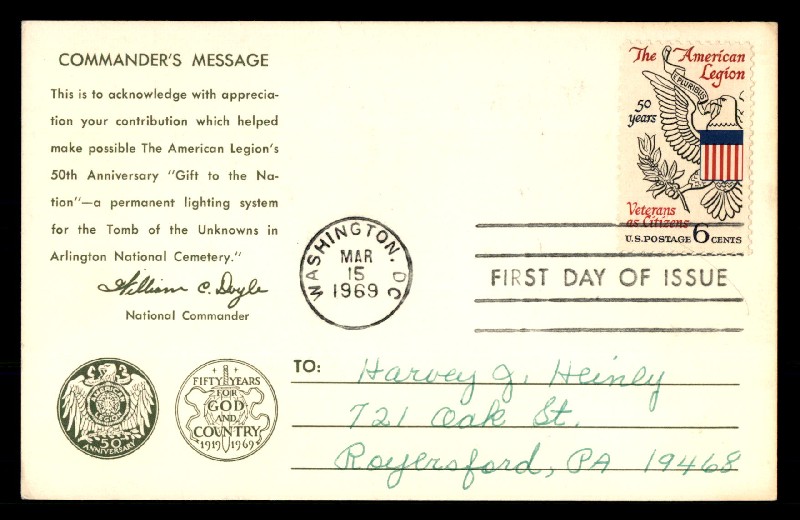 COMMANDER'S MESSAGE
This is to acknowledge with apprecia-
tion your contribution which helped
make possible The American Legion's
50th Anniversary "Gift to the Na-
tion"—a permanent lighting system
for the Tomb of the Unknowns in
Arlington National Cemetery."
William C. Doyle
National Commander
The American
Legion
E PLURIBUS
50
years
Veterans
as Citizens
U.S. POSTAGE 6 CENTS
WASHINGTON, DC
MAR
15
1969
FIRST DAY OF ISSUE
50TH
ANNIVERSARY
FIFTY YEARS
FOR
GOD
AND
COUNTRY
1919 1969
TO:
Harvey J. Heinly
721 Oak St.
Royersford, PA 19468